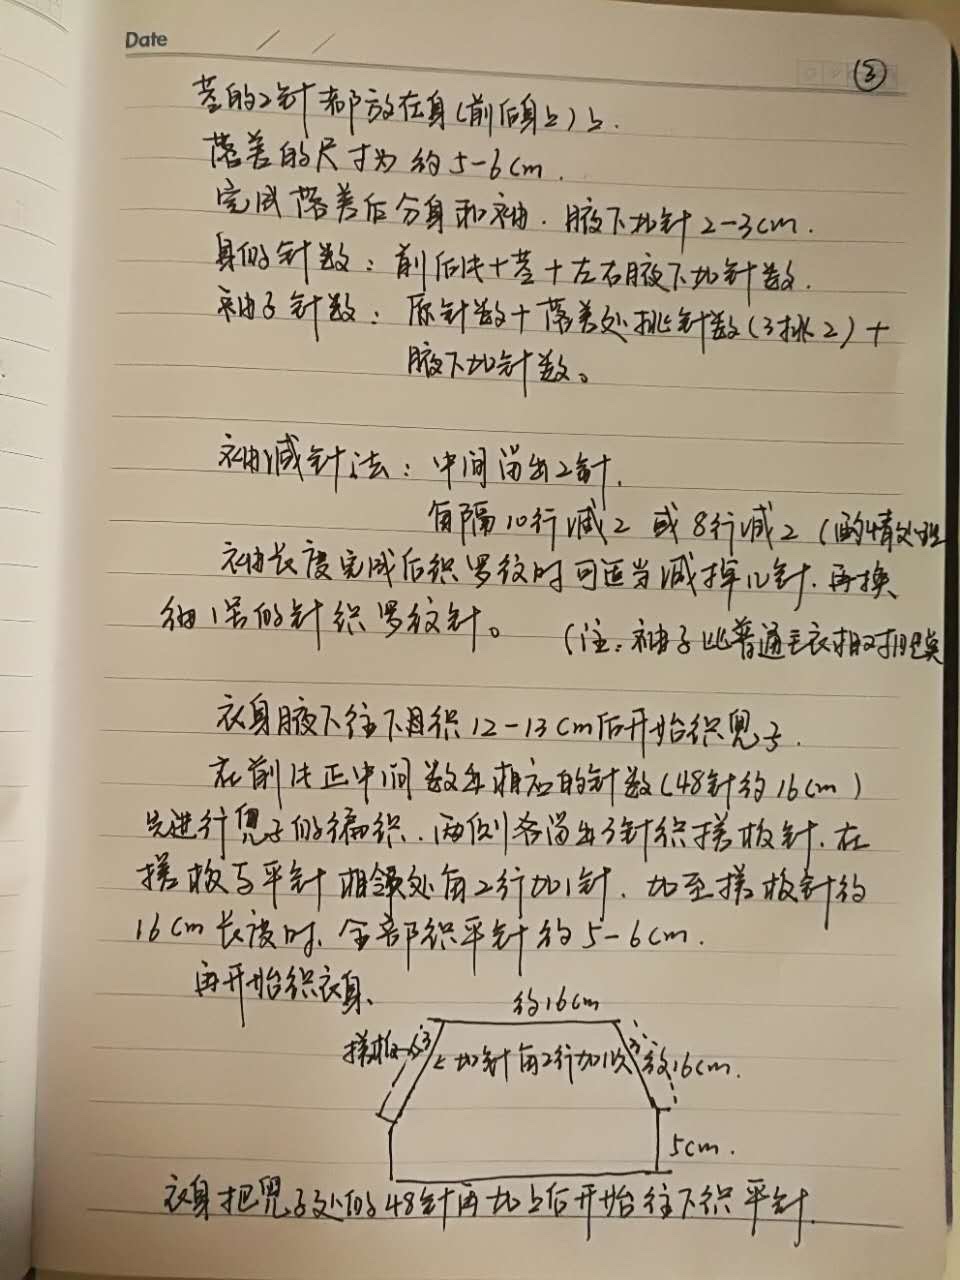 Date / /
③
茎的2针都放在身(前后身上)上.
落差的尺寸为约5-6cm.
完成落差后分身和袖.腋下加针2-3cm.
身的针数:前后片+茎+左右腋下加针数.
袖子针数:原针数+落差处挑针数(3挑2)+
腋下加针数。
袖减针法:中间留出2针.
每隔10行减2 或8行减2(酌情处理
袖长度完成后织罗纹时可适当减掉几针.再换
细1号的针织罗纹针。 (注:袖子比普通毛衣相对
衣身腋下往下织12-13cm后开始织兜子.
在前片正中间数出相应的针数(48针约16cm)
先进行兜子的编织.两侧各留出3针织搓板针.在
搓板与平针相领处每2行加1针.加至搓板针约
16cm长度时.全部织平针约5-6cm.
再开始织衣身.
约16cm
搓板 3 加针每2行加1次 3 约16cm.
5cm.
衣身把兜子处的48针再加上后开始往下织平针.